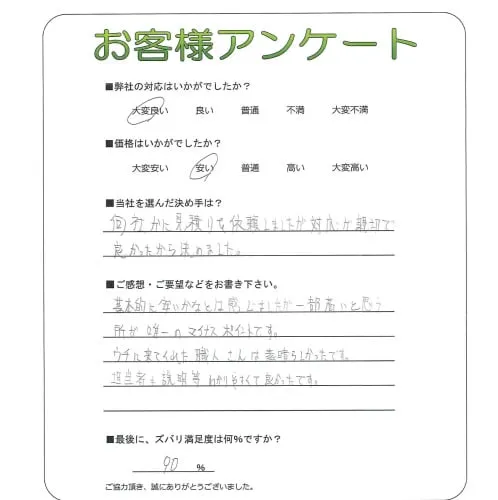 お客様アンケート
■弊社の対応はいかがでしたか？
大変良い 良い 普通 不満 大変不満
■価格はいかがでしたか？
大変安い 安い 普通 高い 大変高い
■当社を選んだ決め手は？
何社かに見積りを依頼しましたが対応が親切で
良かったから決めました。
■ご感想・ご要望などをお書き下さい。
基本的に安いかなとは感じましたが一部高いと思う
所が唯一のマイナスポイントです。
ウチに来てくれた職人さんは素晴らしかったです。
担当者も説明等わかりやすくて良かったです。
■最後に、ズバリ満足度は何％ですか？
90 ％
ご協力頂き、誠にありがとうございました。